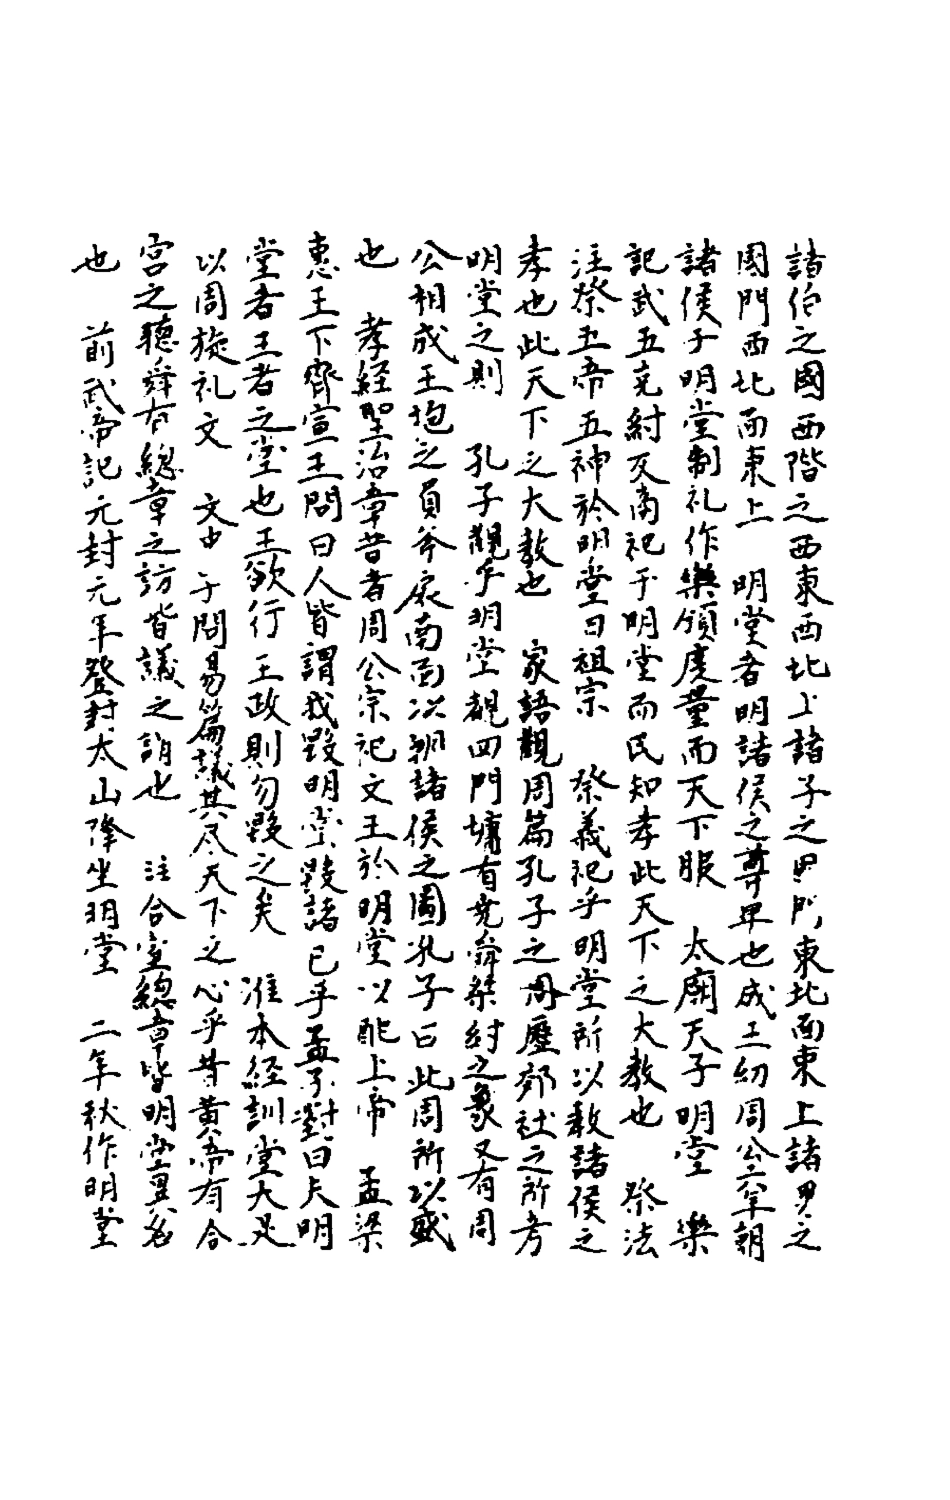 諸伯之國西階之西東西北上諸子之國門東北面東上諸男之
國門西北面東上　明堂者明諸侯之尊卑也成王幼周公□朝
諸侯于明堂制礼作樂頒度量而天下服　太廟天子明堂　樂
記武王克紂反商祀于明堂而民知孝此天下之大教也　祭法
注祭五帝五神於明堂曰祖宗　祭義祀乎明堂所以教諸侯之
孝也此天下之大教也　家語觀周篇孔子之周歷郊社之所考
明堂之則　孔子觀乎明堂覩四門墉有堯舜桀紂之象又有周
公相成王抱之負斧扆南面以朝諸侯之圖孔子曰此周所以盛
也　孝経聖治章昔者周公宗祀文王於明堂以配上帝　孟梁
惠王下齊宣王問曰人皆謂我毀明堂毀諸已乎孟子對曰夫明
堂者王者之堂也王欲行王政則勿毀之矣　淮本経訓堂大足
以周旋礼文　文中子問易篇議其尽天下之心乎昔黃帝有合
宮之聽舜有總章之訪皆議之謂也　注合宮總章皆明堂異名
也　前武帝記元封元年登封太山降坐明堂　二年秋作明堂